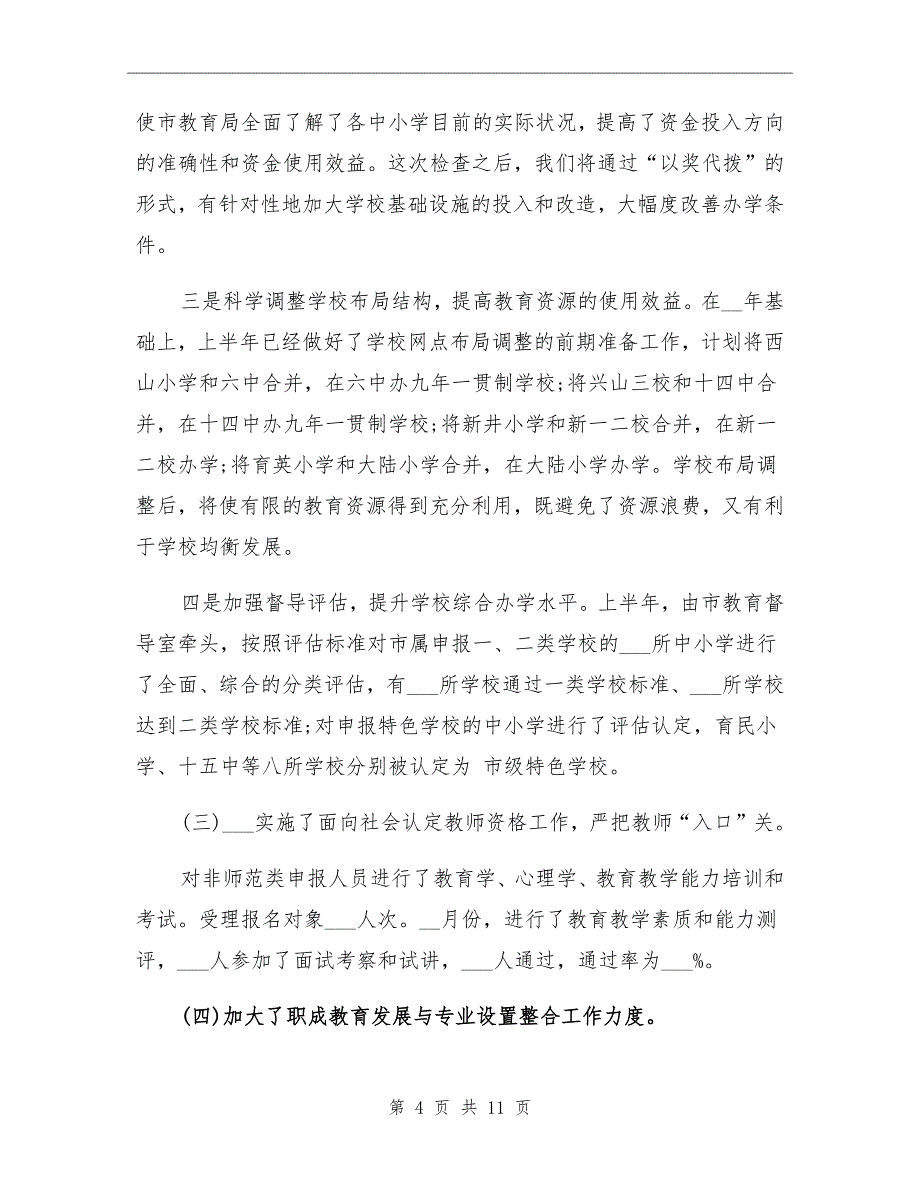 使市教育局全面了解了各中小学目前的实际状况，提高了资金投入方向
的准确性和资金使用效益。这次检查之后，我们将通过“以奖代拨”的
形式，有针对性地加大学校基础设施的投入和改造，大幅度改善办学条
件。
三是科学调整学校布局结构，提高教育资源的使用效益。在__年基
础上，上半年已经做好了学校网点布局调整的前期准备工作，计划将西
山小学和六中合并，在六中办九年一贯制学校;将兴山三校和十四中合
并，在十四中办九年一贯制学校;将新井小学和新一二校合并，在新一
二校办学;将育英小学和大陆小学合并，在大陆小学办学。学校布局调
整后，将使有限的教育资源得到充分利用，既避免了资源浪费，又有利
于学校均衡发展。
四是加强督导评估，提升学校综合办学水平。上半年，由市教育督
导室牵头，按照评估标准对市属申报一、二类学校的___所中小学进行
了全面、综合的分类评估，有___所学校通过一类学校标准、___所学校
达到二类学校标准;对申报特色学校的中小学进行了评估认定，育民小
学、十五中等八所学校分别被认定为 市级特色学校。
(三)___实施了面向社会认定教师资格工作，严把教师“入口”关。
对非师范类申报人员进行了教育学、心理学、教育教学能力培训和
考试。受理报名对象___人次。__月份，进行了教育教学素质和能力测
评，___人参加了面试考察和试讲，___人通过，通过率为___%。
(四)加大了职成教育发展与专业设置整合工作力度。
第 4 页 共 11 页